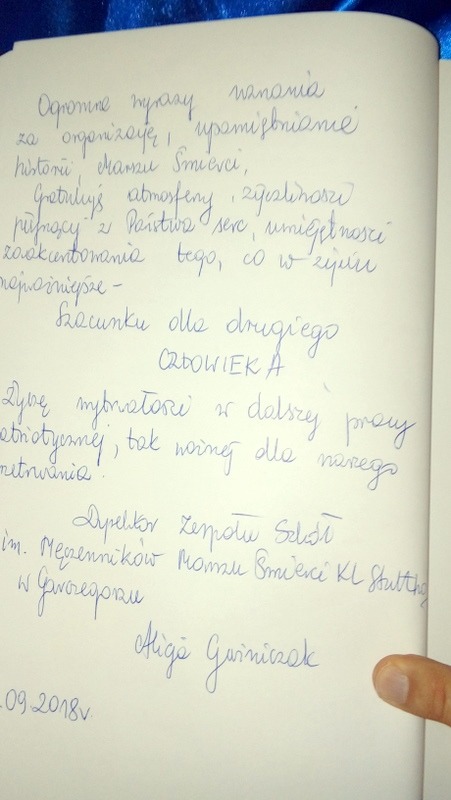 Ogromne wyrazy uznania
za organizację, upamiętnianie
historii, Marszu Śmierci,
Gratuluję atmosfery, życzliwości
płynącej z Państwa serc, umiejętności
zaakcentowania tego, co w życiu
najważniejsze -
Szacunku dla drugiego
CZŁOWIEKA
Życzę wytrwałości w dalszej pracy
atriotycznej, tak ważnej dla naszego
rzetrwania.
Dyrektor Zespołu Szkół
im. Męczenników Marszu Śmierci KL Stuttho
w Garczegorzu
Alicja
.09.2018r.